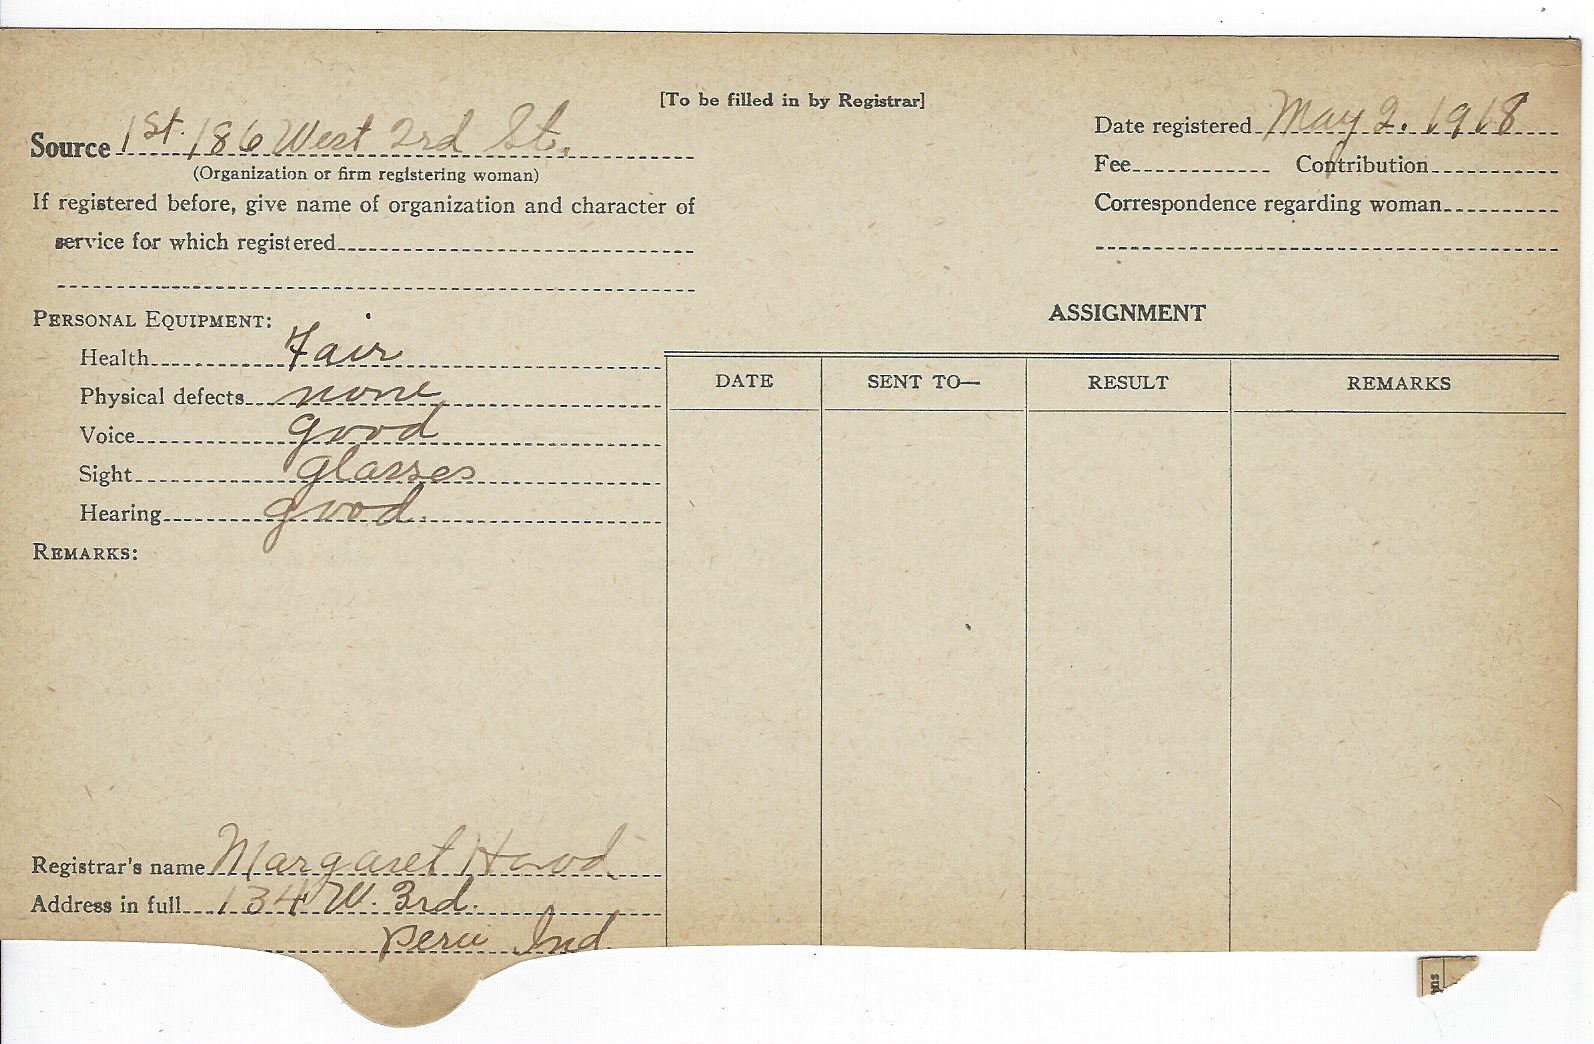 [To be filled in by Registrar]
Source 1st. 186 West 2rd St.
(Organization or firm registering woman)
If registered before, give name of organization and character of
service for which registered
Date registered May 2. 1918
Fee Contribution
Correspondence regarding woman
PERSONAL EQUIPMENT:
Health Fair
Physical defects none
Voice good
Sight glasses
Hearing good.
REMARKS:
ASSIGNMENT
DATE SENT TO— RESULT REMARKS
Registrar's name Margaret Hood
Address in full 134 W. 3rd.
Peru Ind